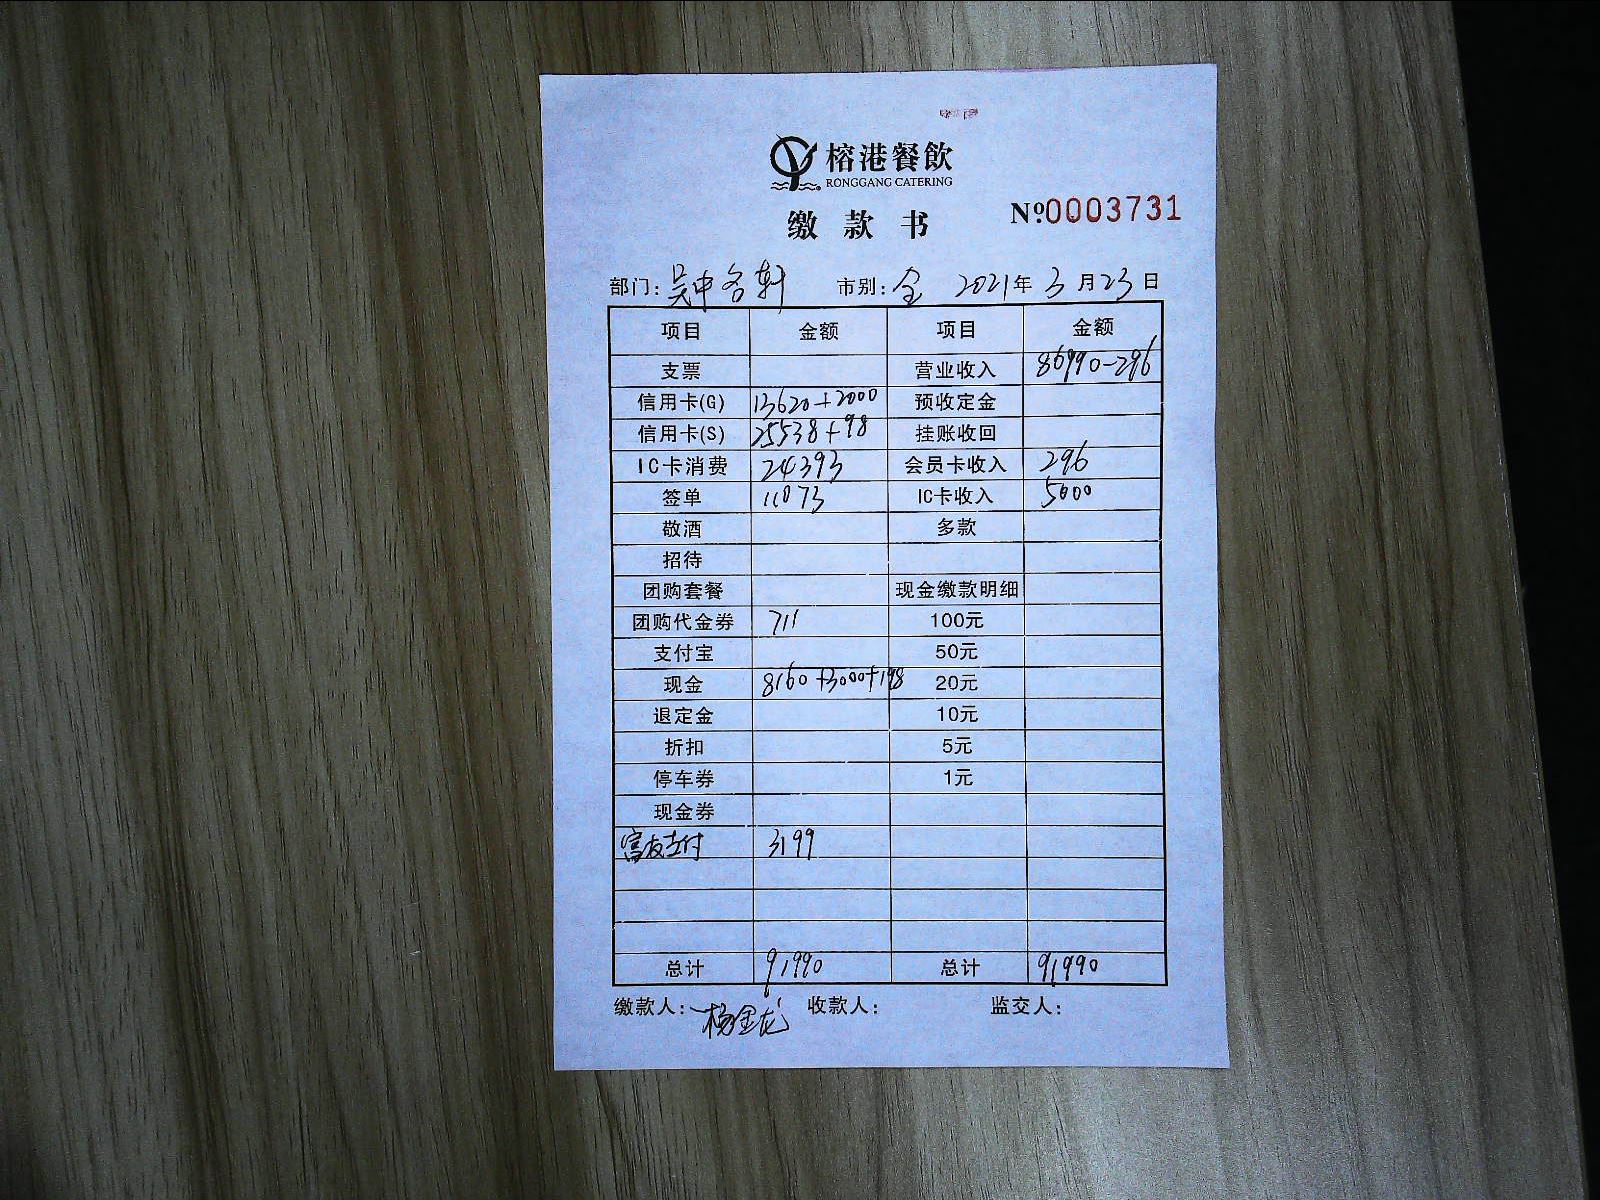 榕港餐飲
RONGGANG CATERING
缴款书 №0003731
部门: 吴中名轩 市别: 全 2021年3月23日
项目 金额 项目 金额
支票 营业收入 86990-296
信用卡(G) 13620+2000 预收定金
信用卡(S) 25538+98 挂账收回
IC卡消费 24393 会员卡收入 296
签单 11073 IC卡收入 5000
敬酒 多款
招待
团购套餐 现金缴款明细
团购代金券 711 100元
支付宝 50元
现金 8160+3000+198 20元
退定金 10元
折扣 5元
停车券 1元
现金券
富友支付 3199
总计 91990 总计 91990
缴款人: 杨金龙 收款人: 监交人: